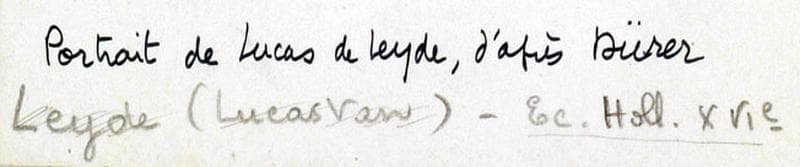 Portrait de Lucas de Leyde, d'après Dürer
Leyde (Lucas Van) - Ec. Holl. XVIe